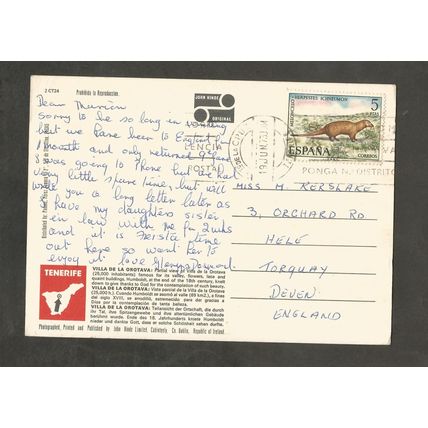 2 CT24
Prohibida la Reproduccion.
JOHN HINDE
ORIGINAL
Dear Marion
Sorry to be so long in
but we have been to England for
1 month and only returned
was going to Phone but had
very little spare time, but will
write you a long letter later as
I have my daughters sister
in law with me for 2 wks
and it is Fiesta time
out here so want her to
enjoy it love
LENCIA
19 JUN. 72
5
PTAS
HERPESTES ICHNEUMON
ESPAÑA
CORREOS
PONGA N. DISTRITO
MISS M. KERSLAKE
3, ORCHARD RD
HELE
TORQUAY
DEVEN.
ENGLAND
TENERIFE
VILLA DE LA OROTAVA: Partial view of Villa de la Orotava
(25,000 inhabitants) famous for its valley, flowers, lace and
quaint buildings. Humboldt, at the end of the 18th century, knelt
down to give thanks to God for the contemplation of such beauty.
VILLA DE LA OROTAVA: Vista parcial de la Villa de la Orotava
(25,000 h.). Cuando Humboldt se asomó al valle a fines
del siglo XVIII, se arrodilló, extremecido para dar gracias a
Dios por la contemplación de tanta belleza.
VILLA DE LA OROTAVA: Teilansicht der Ortschaft, die durch
ihr Tal, ihre Spitzengewebe und ihre altertümlichen Gebäude
berühmt wurde. Ende des 18. Jahrhunderts kniete Humboldt
nieder und dankte Gott, dass er solche Schönheit sehen durfte.
Photographed, Printed and Published by John Hinde Limited, Cabinteely, Co. Dublin, Republic of Ireland.